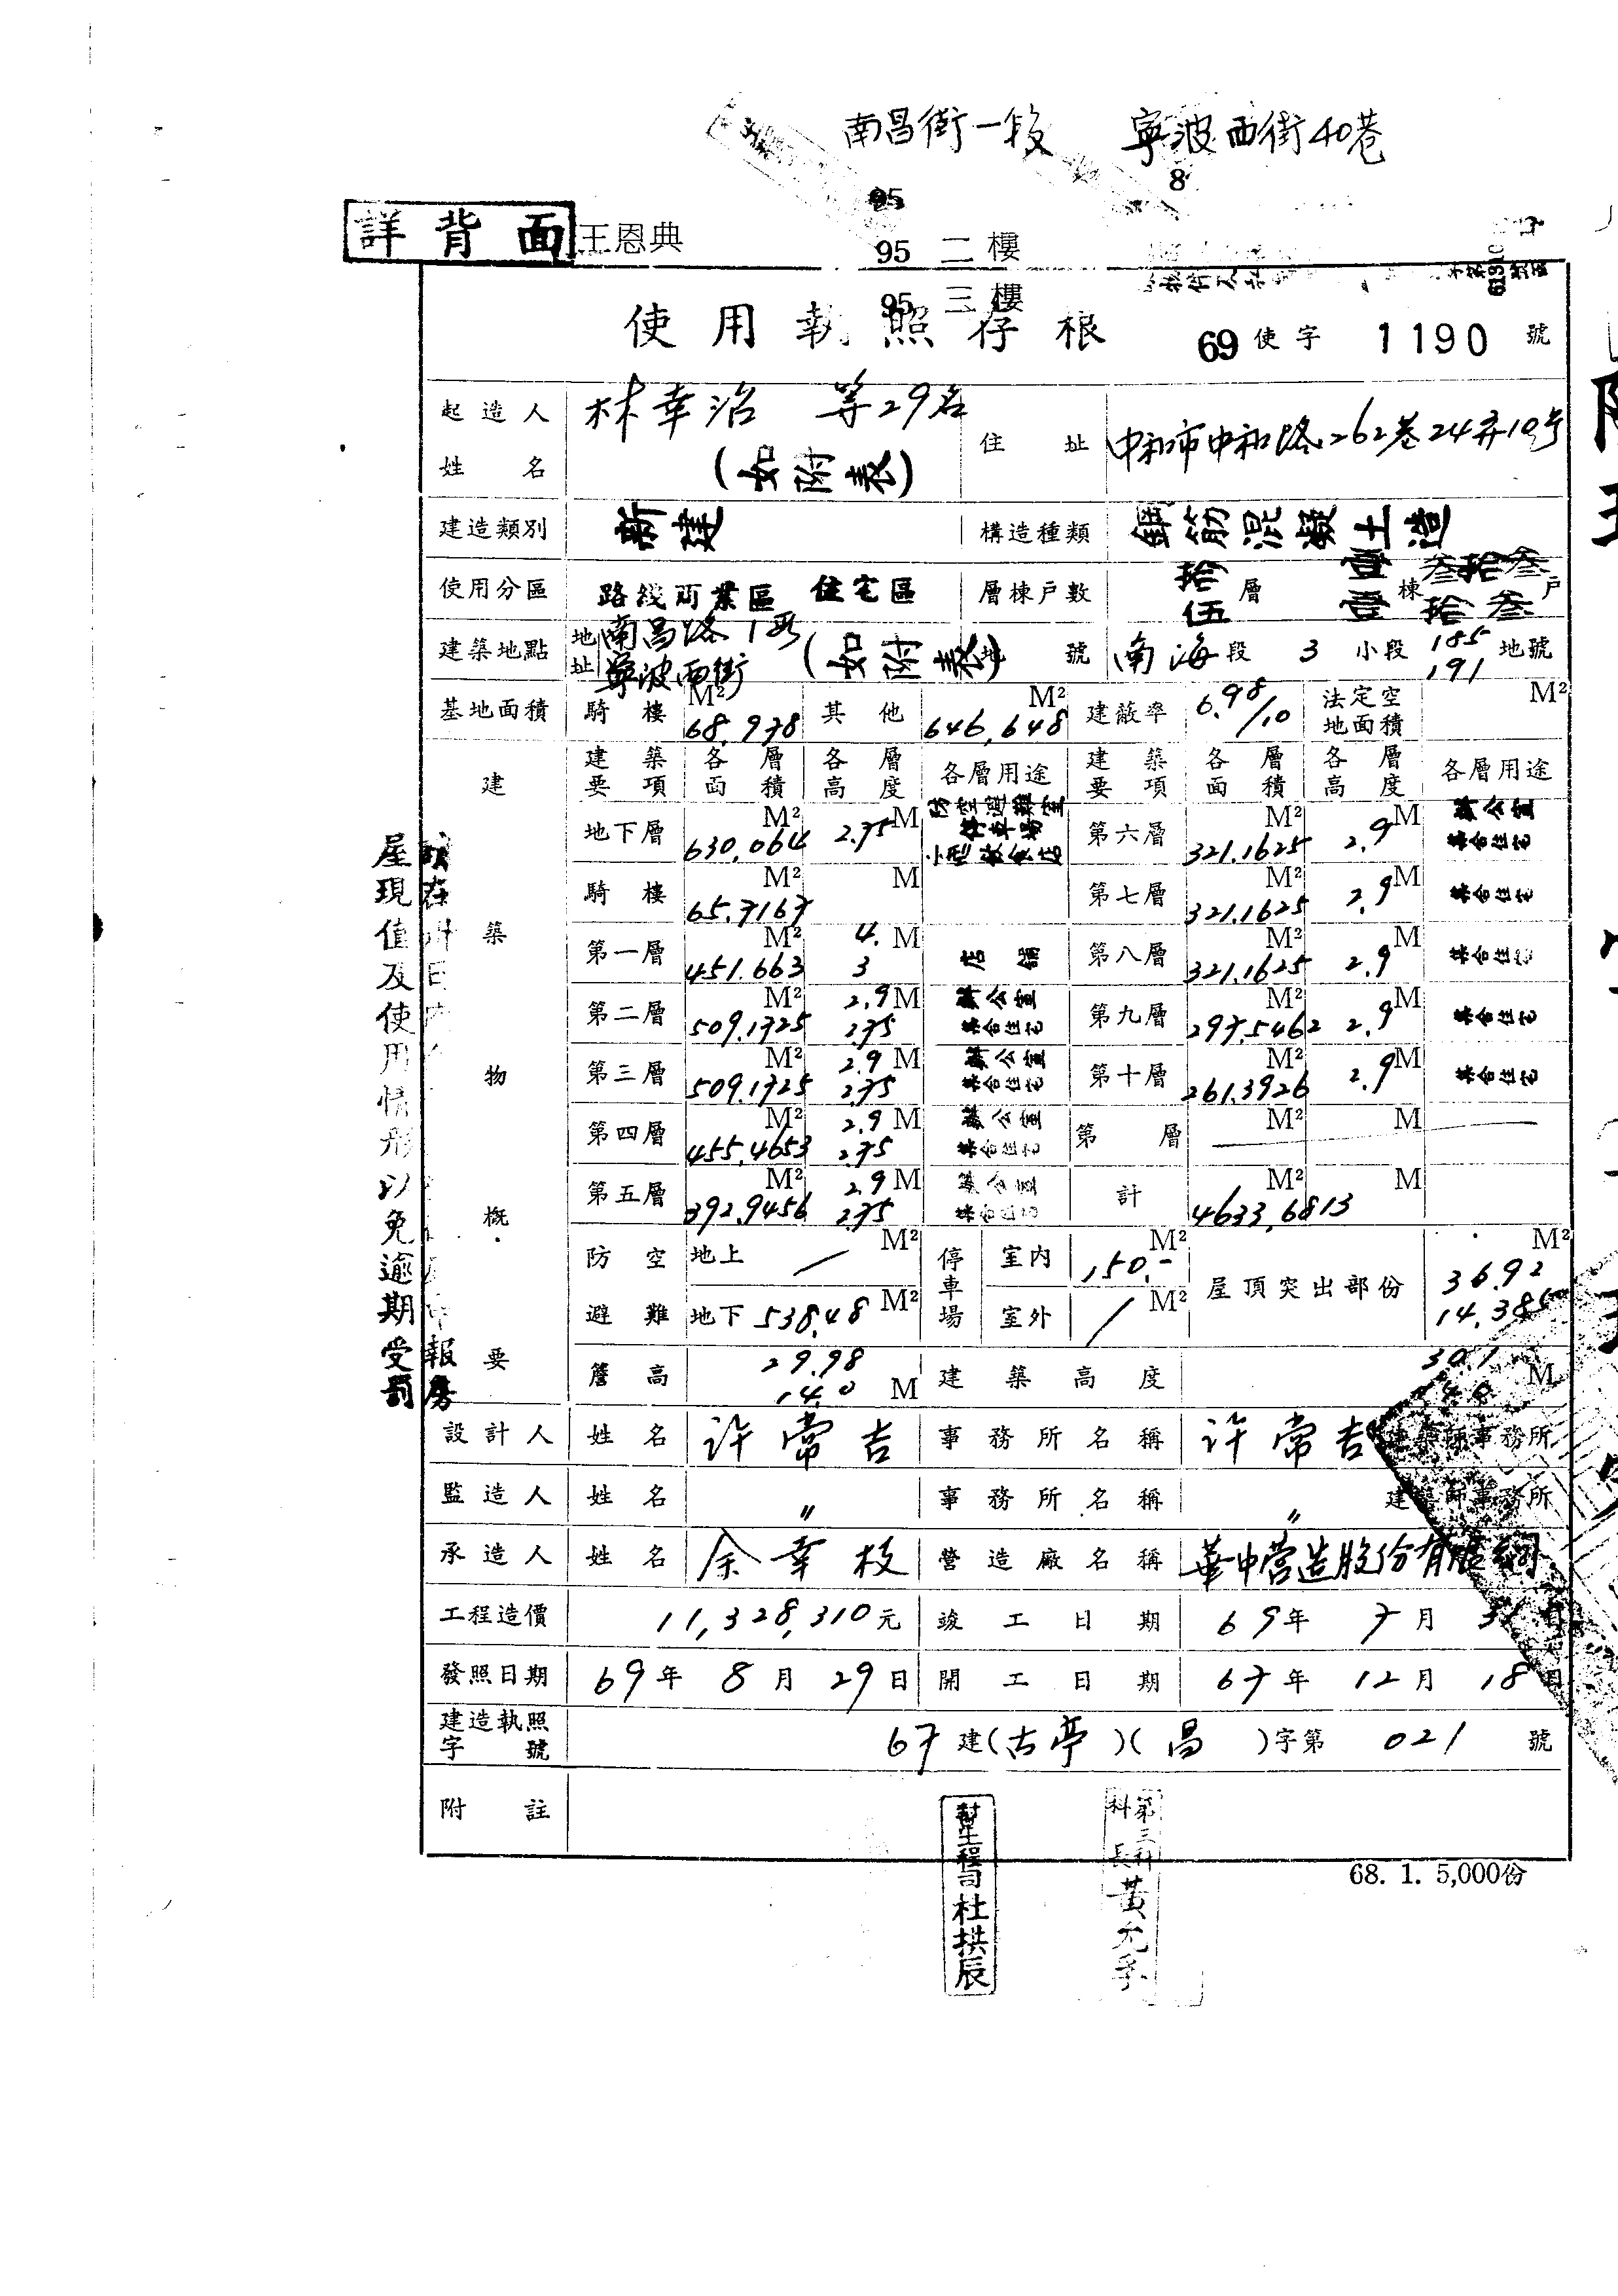 南昌街一段 寧波西街40巷
8
95
詳背面 王恩典 95 二樓
95 三樓
使用執照存根 69使字 1190 號
起造人姓名 林幸治 等29名 (如附表) 住址 中和市中和路262巷24弄10号
建造類別 新建 構造種類 鋼筋混凝土造
使用分區 路綫商業區 住宅區 層棟戶數 拾伍層 壹壹棟 叁拾叁 壹拾叁戶
建築地點 地址 南昌路1段 寧波西街 (如附表) 地號 南海段 3小段 185 191 地號
基地面積 騎樓 M² 68.978 其他 M² 646.648 建蔽率 6.98/10 法定空地面積 M²
建築物概要
建築要項 各層面積 各層高度 各層用途 建築要項 各層面積 各層高度 各層用途
地下層 M² 630.064 2.75 M 防空避難室 停車場 第六層 M² 321.1625 2.9 M 辦公室 集合住宅
騎樓 M² 65.7167 M 第七層 M² 321.1625 2.9 M 集合住宅
第一層 M² 451.663 4.3 M 店舖 第八層 M² 321.1625 2.9 M 集合住宅
第二層 M² 509.1725 2.9 M 2.75 辦公室 集合住宅 第九層 M² 297.5462 2.9 M 集合住宅
第三層 M² 509.1725 2.9 M 2.75 辦公室 集合住宅 第十層 M² 261.3926 2.9 M 集合住宅
第四層 M² 455.4653 2.9 M 2.75 辦公室 集合住宅 第 層 M² M
第五層 M² 392.9456 2.9 M 2.75 辦公室 集合住宅 計 M² 4633.6813 M
防空避難 地上 / M² 停車場 室內 150.- M² 屋頂突出部份 M² 36.92
地下 538.48 M² 室外 / M² 14.385
簷高 29.98 14.0 M 建築高度 30.1 M
設計人 姓名 許常吉 事務所名稱 許常吉 建築師事務所
監造人 姓名 〃 事務所名稱 〃 建築師事務所
承造人 姓名 余幸枝 營造廠名稱 華中营造股份有限公司
工程造價 11,328,310元 竣工日期 69年 7月
發照日期 69年 8月 29日 開工日期 67年 12月 18日
建造執照字號 67建(古亭)(昌 )字第 021 號
附註
68. 1. 5,000份
屋現值及使用情形以免逾期受罰
幫工程司 杜拱辰
第三科科長 黃